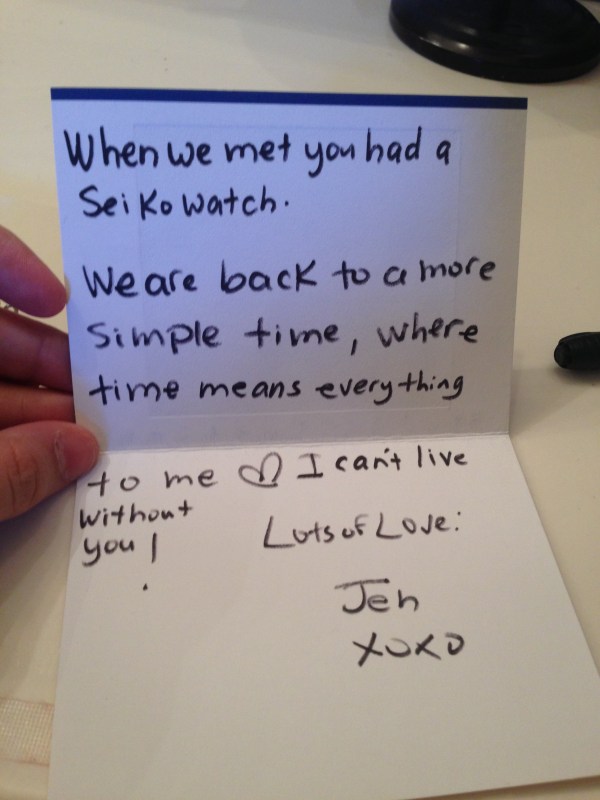 When we met you had a
Seiko watch.
We are back to a more
simple time, where
time means everything
to me ♡ I can't live
without
you!
Lots of Love:
Jen
XOXO